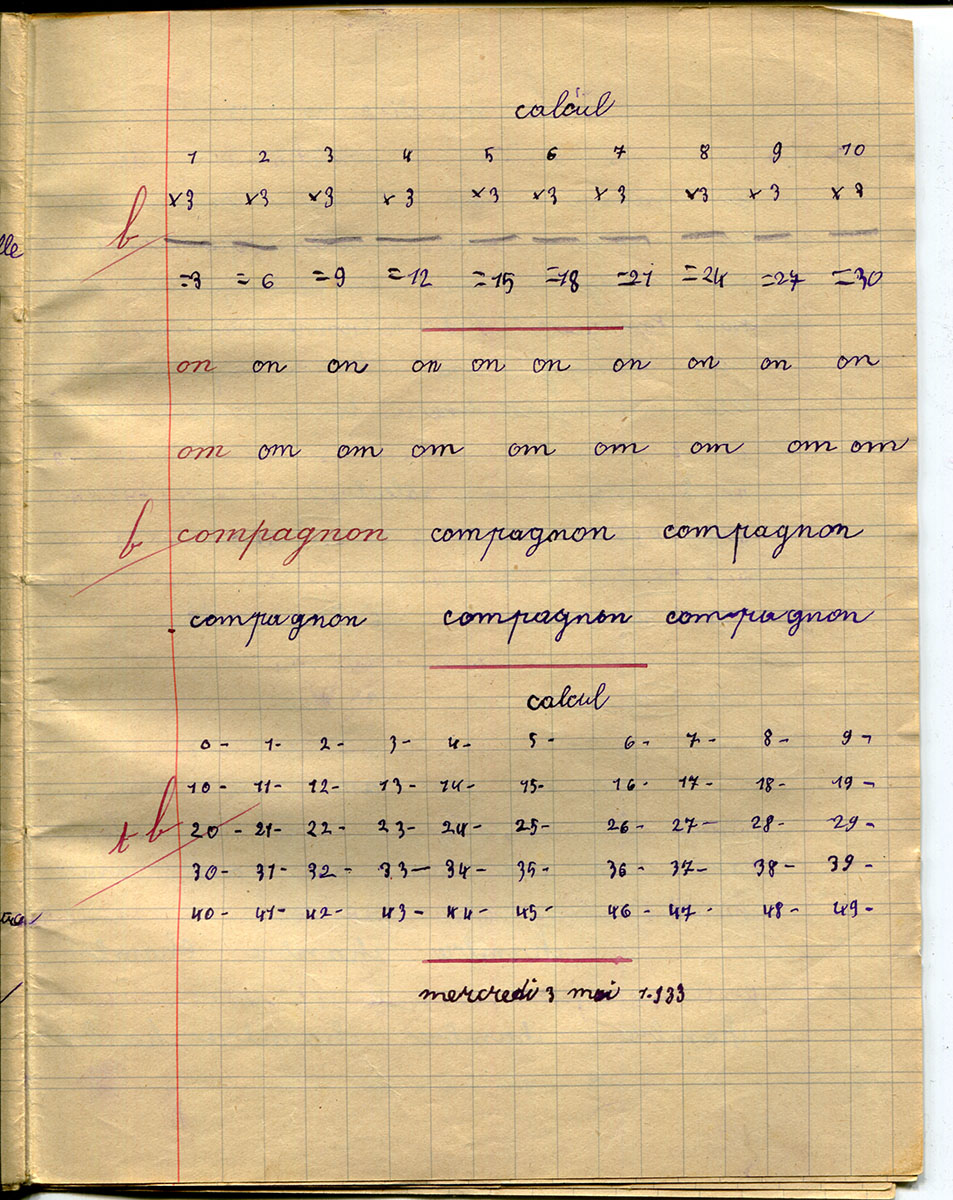 calcul
1 2 3 4 5 6 7 8 9 10
b x3 x3 x3 x3 x3 x3 x3 x3 x3 x
=3 =6 =9 =12 =15 =18 =21 =24 =27 =30
on on on on on on on on on on
om om om om om om om om om
b compagnon compagnon compagnon
compagnon compagnon compagnon
calcul
0- 1- 2- 3- 4- 5- 6- 7- 8- 9-
10- 11- 12- 13- 14- 15- 16- 17- 18- 19-
tb 20- 21- 22- 23- 24- 25- 26- 27- 28- 29-
30- 31- 32- 33- 34- 35- 36- 37- 38- 39-
40- 41- 42- 43- 44- 45- 46- 47- 48- 49-
mercredi 3 mai 1.933